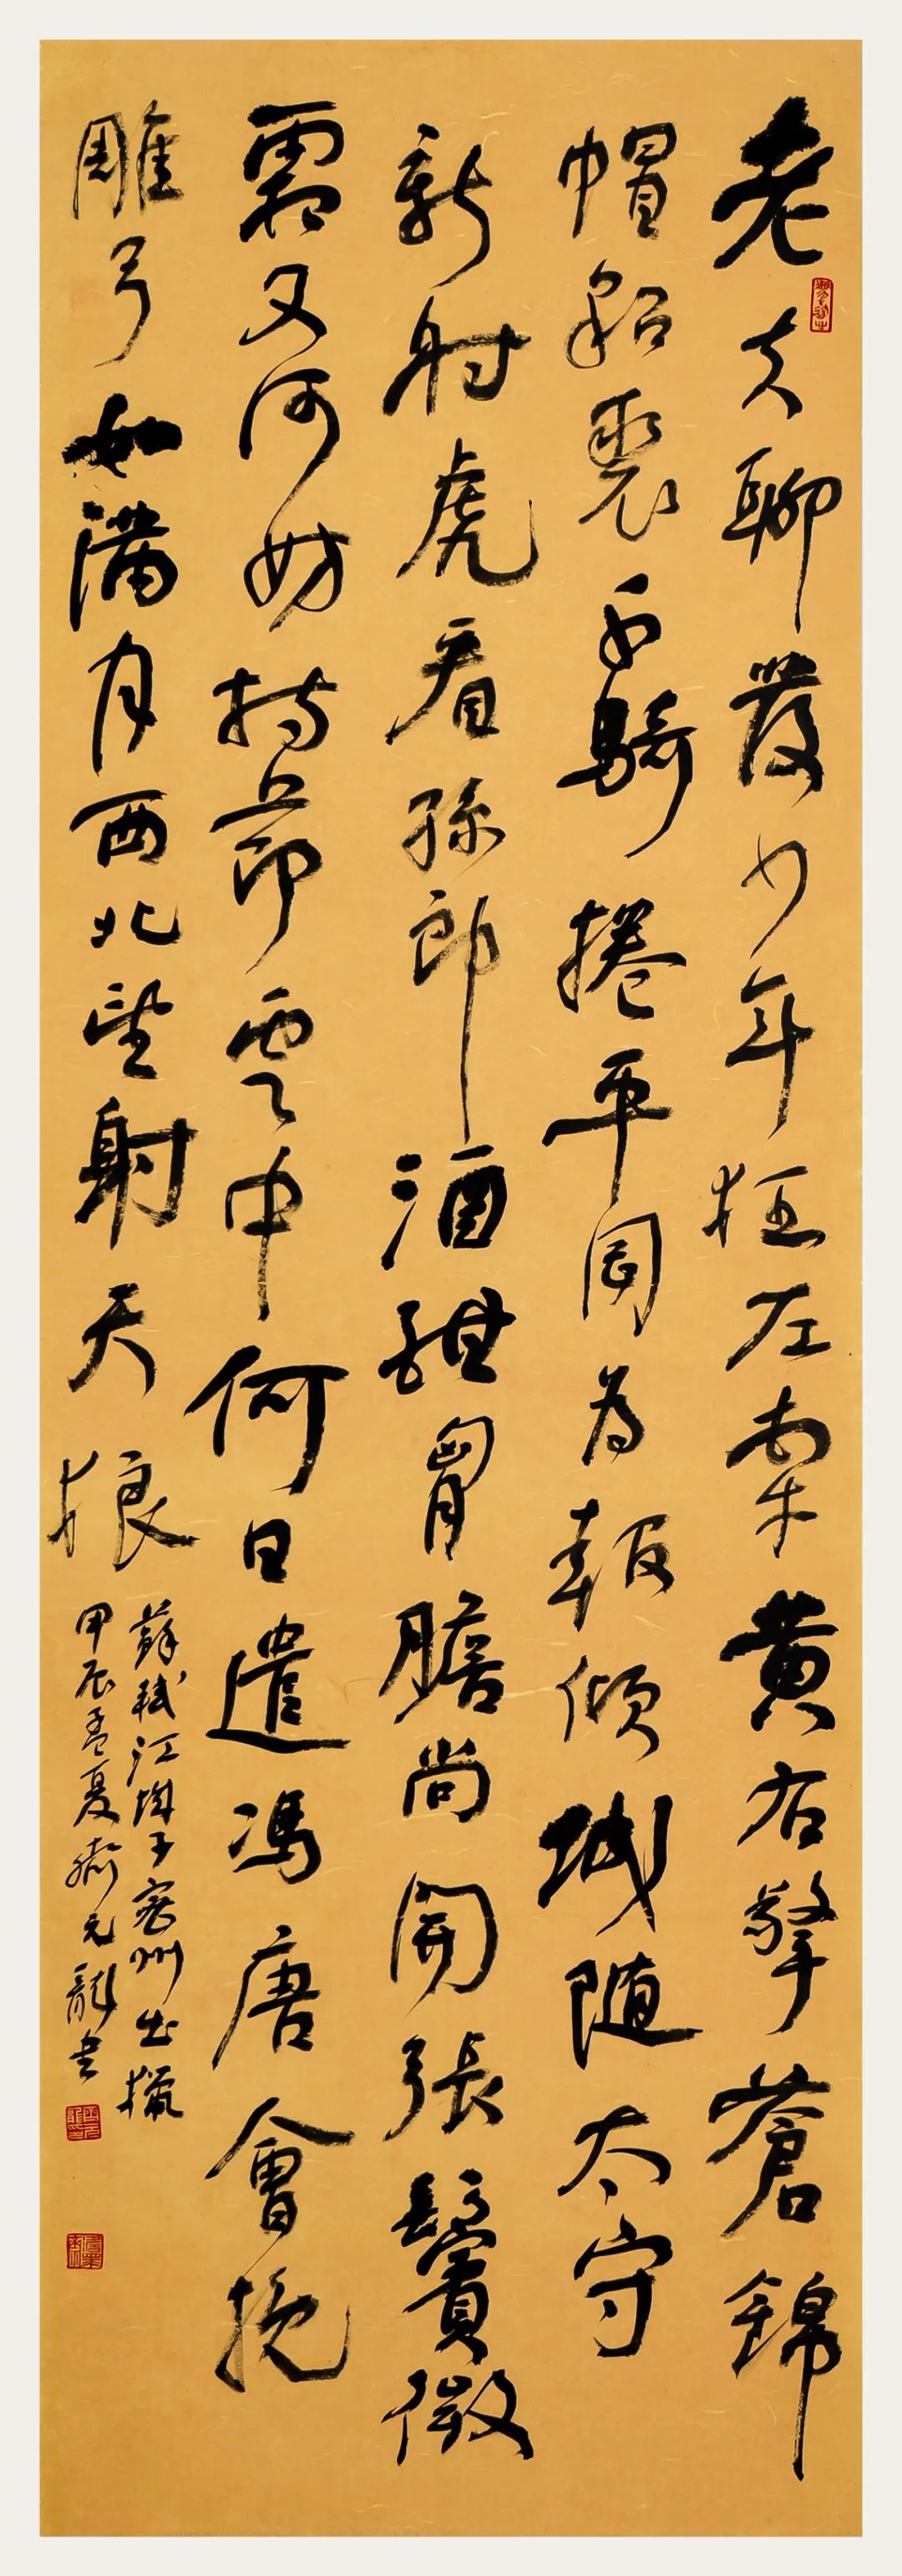 老夫聊發少年狂左牽黃右擎蒼錦
帽貂裘千騎捲平岡為報傾城随太守
親射虎看孫郎酒酣胷膽尚開張鬢微
霜又何妨持節雲中何日遣馮唐會挽
雕弓如滿月西北望射天狼
蘇軾江城子密州出獵
甲辰孟夏元龍書